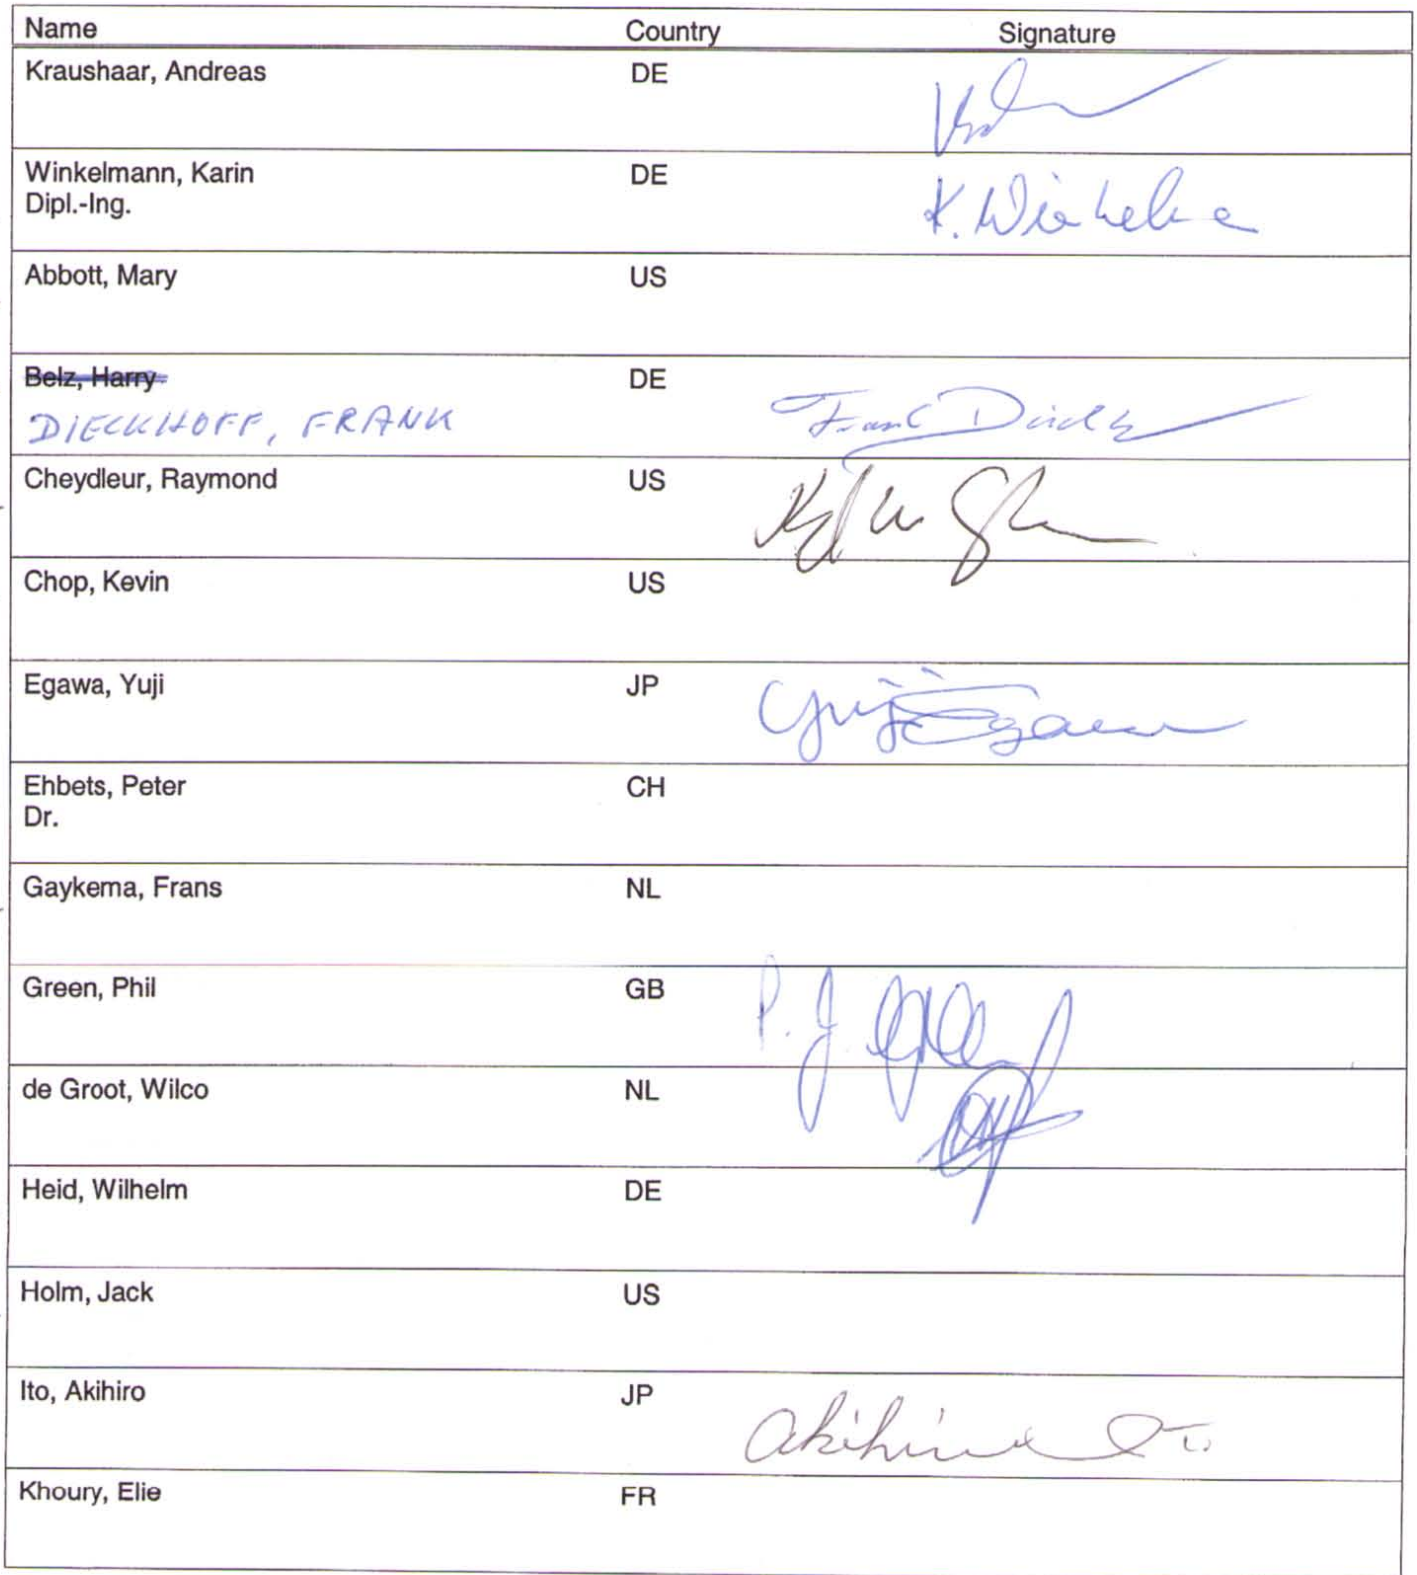 Name Country Signature
Kraushaar, Andreas DE
Winkelmann, Karin DE K. Winkelma
Dipl.-Ing.
Abbott, Mary US
Belz, Harry DE
DIECKHOFF, FRANK Frank Dieckh
Cheydleur, Raymond US
Chop, Kevin US
Egawa, Yuji JP Yuji Egawa
Ehbets, Peter CH
Dr.
Gaykema, Frans NL
Green, Phil GB P. J. Green
de Groot, Wilco NL
Heid, Wilhelm DE
Holm, Jack US
Ito, Akihiro JP Akihiro Ito
Khoury, Elie FR